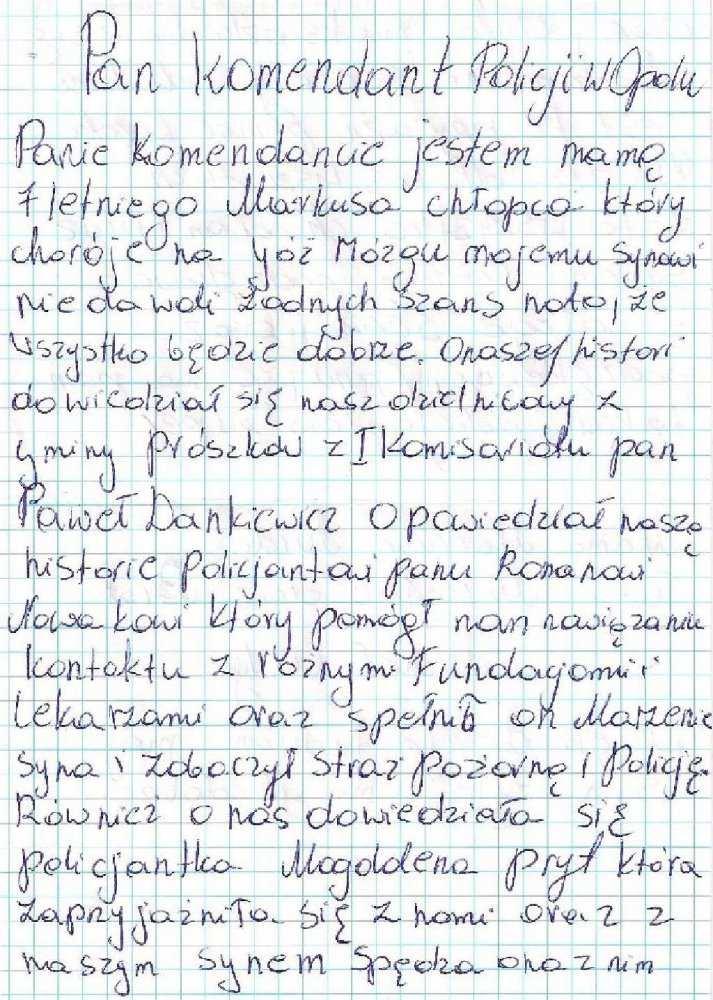 Pan Komendant Policji w Opolu
Panie Komendancie jestem mamę
7 letniego Markusa chłopca który
choróje na yóź Mózgu mojemu Synowi
nie dawali żadnych szans na to, że
wszystko będzie dobrze. O naszej histori
dowiedział się nasz dzielnicowy z
gminy Prószków z I Komisariatu pan
Paweł Dankiewicz Opowiedział naszę
historie Policjantowi panu Romanowi
Nowakowi który pomógł nam nawiązaniu
kontaktu z różnymi Fundacjami i
Lekarzami oraz spełnił on Marzenie
syna i zobaczył straż pożarnę i Policję.
Również o nas dowiedziała się
policjantka Magdalena Pryt która
zaprzyjaźniła się z nami oraz z
naszym synem Spędza ona z nim